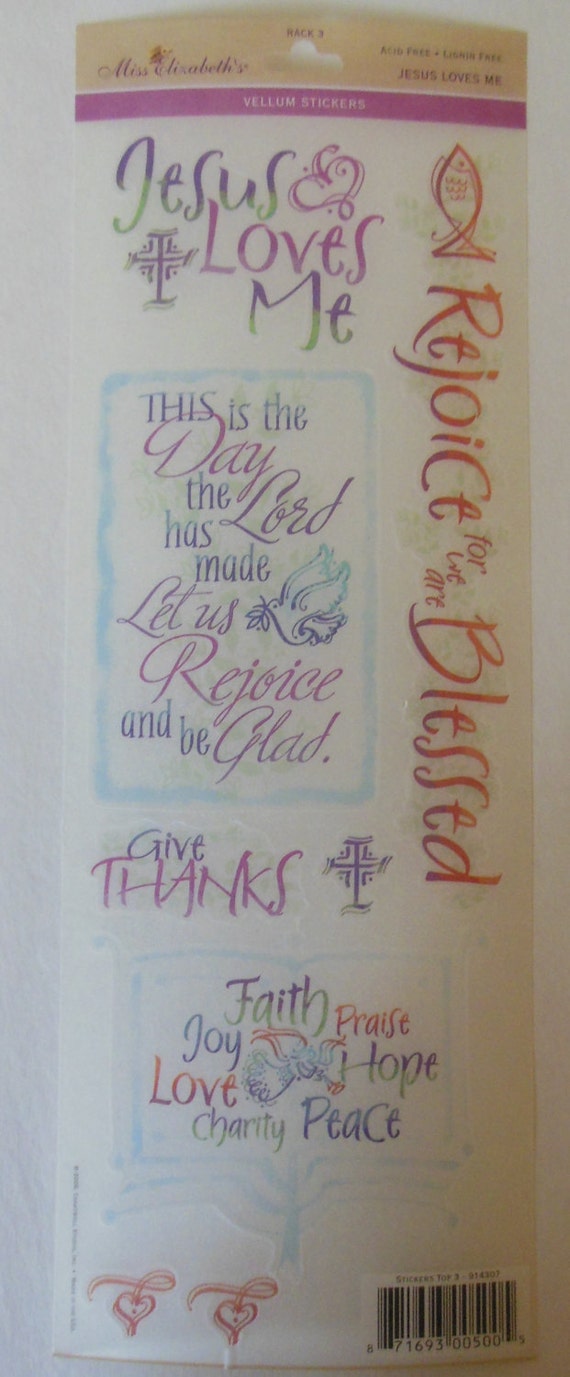 RACK 3
Miss Elizabeth's
ACID FREE • LIGNIN FREE
JESUS LOVES ME
VELLUM STICKERS
Jesus
Loves
Me
Rejoice for we are Blessed
THIS is the
Day
the Lord
has
made
Let us
Rejoice
and be Glad.
Give
THANKS
Faith
Praise
Joy
Hope
Love
Charity
Peace
STICKERS TOP 3 - 914307
8 71693 00500 5